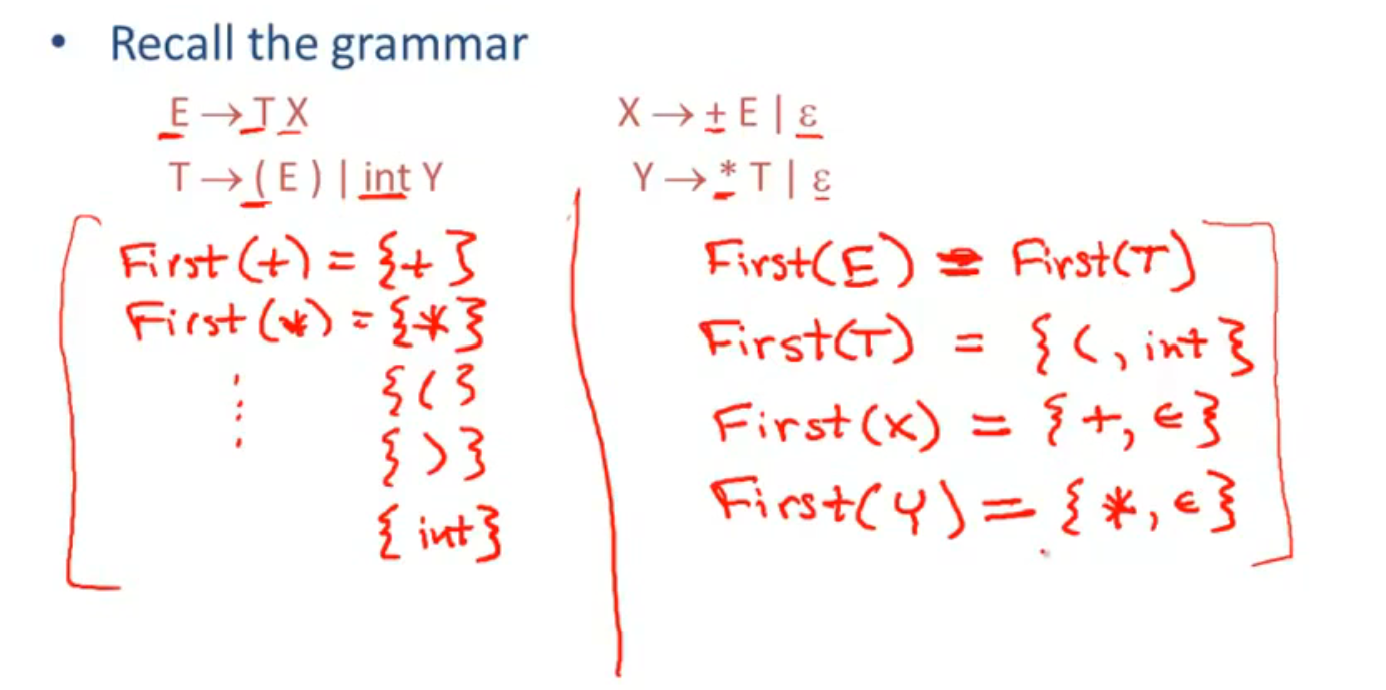 • Recall the grammar
E → T X
X → + E | ε
T → ( E ) | int Y
Y → * T | ε
First(+) = {+}
First(*) = {*}
{(}
{)}
{int}
First(E) = First(T)
First(T) = {(, int}
First(X) = {+, ∈}
First(Y) = {*, ∈}